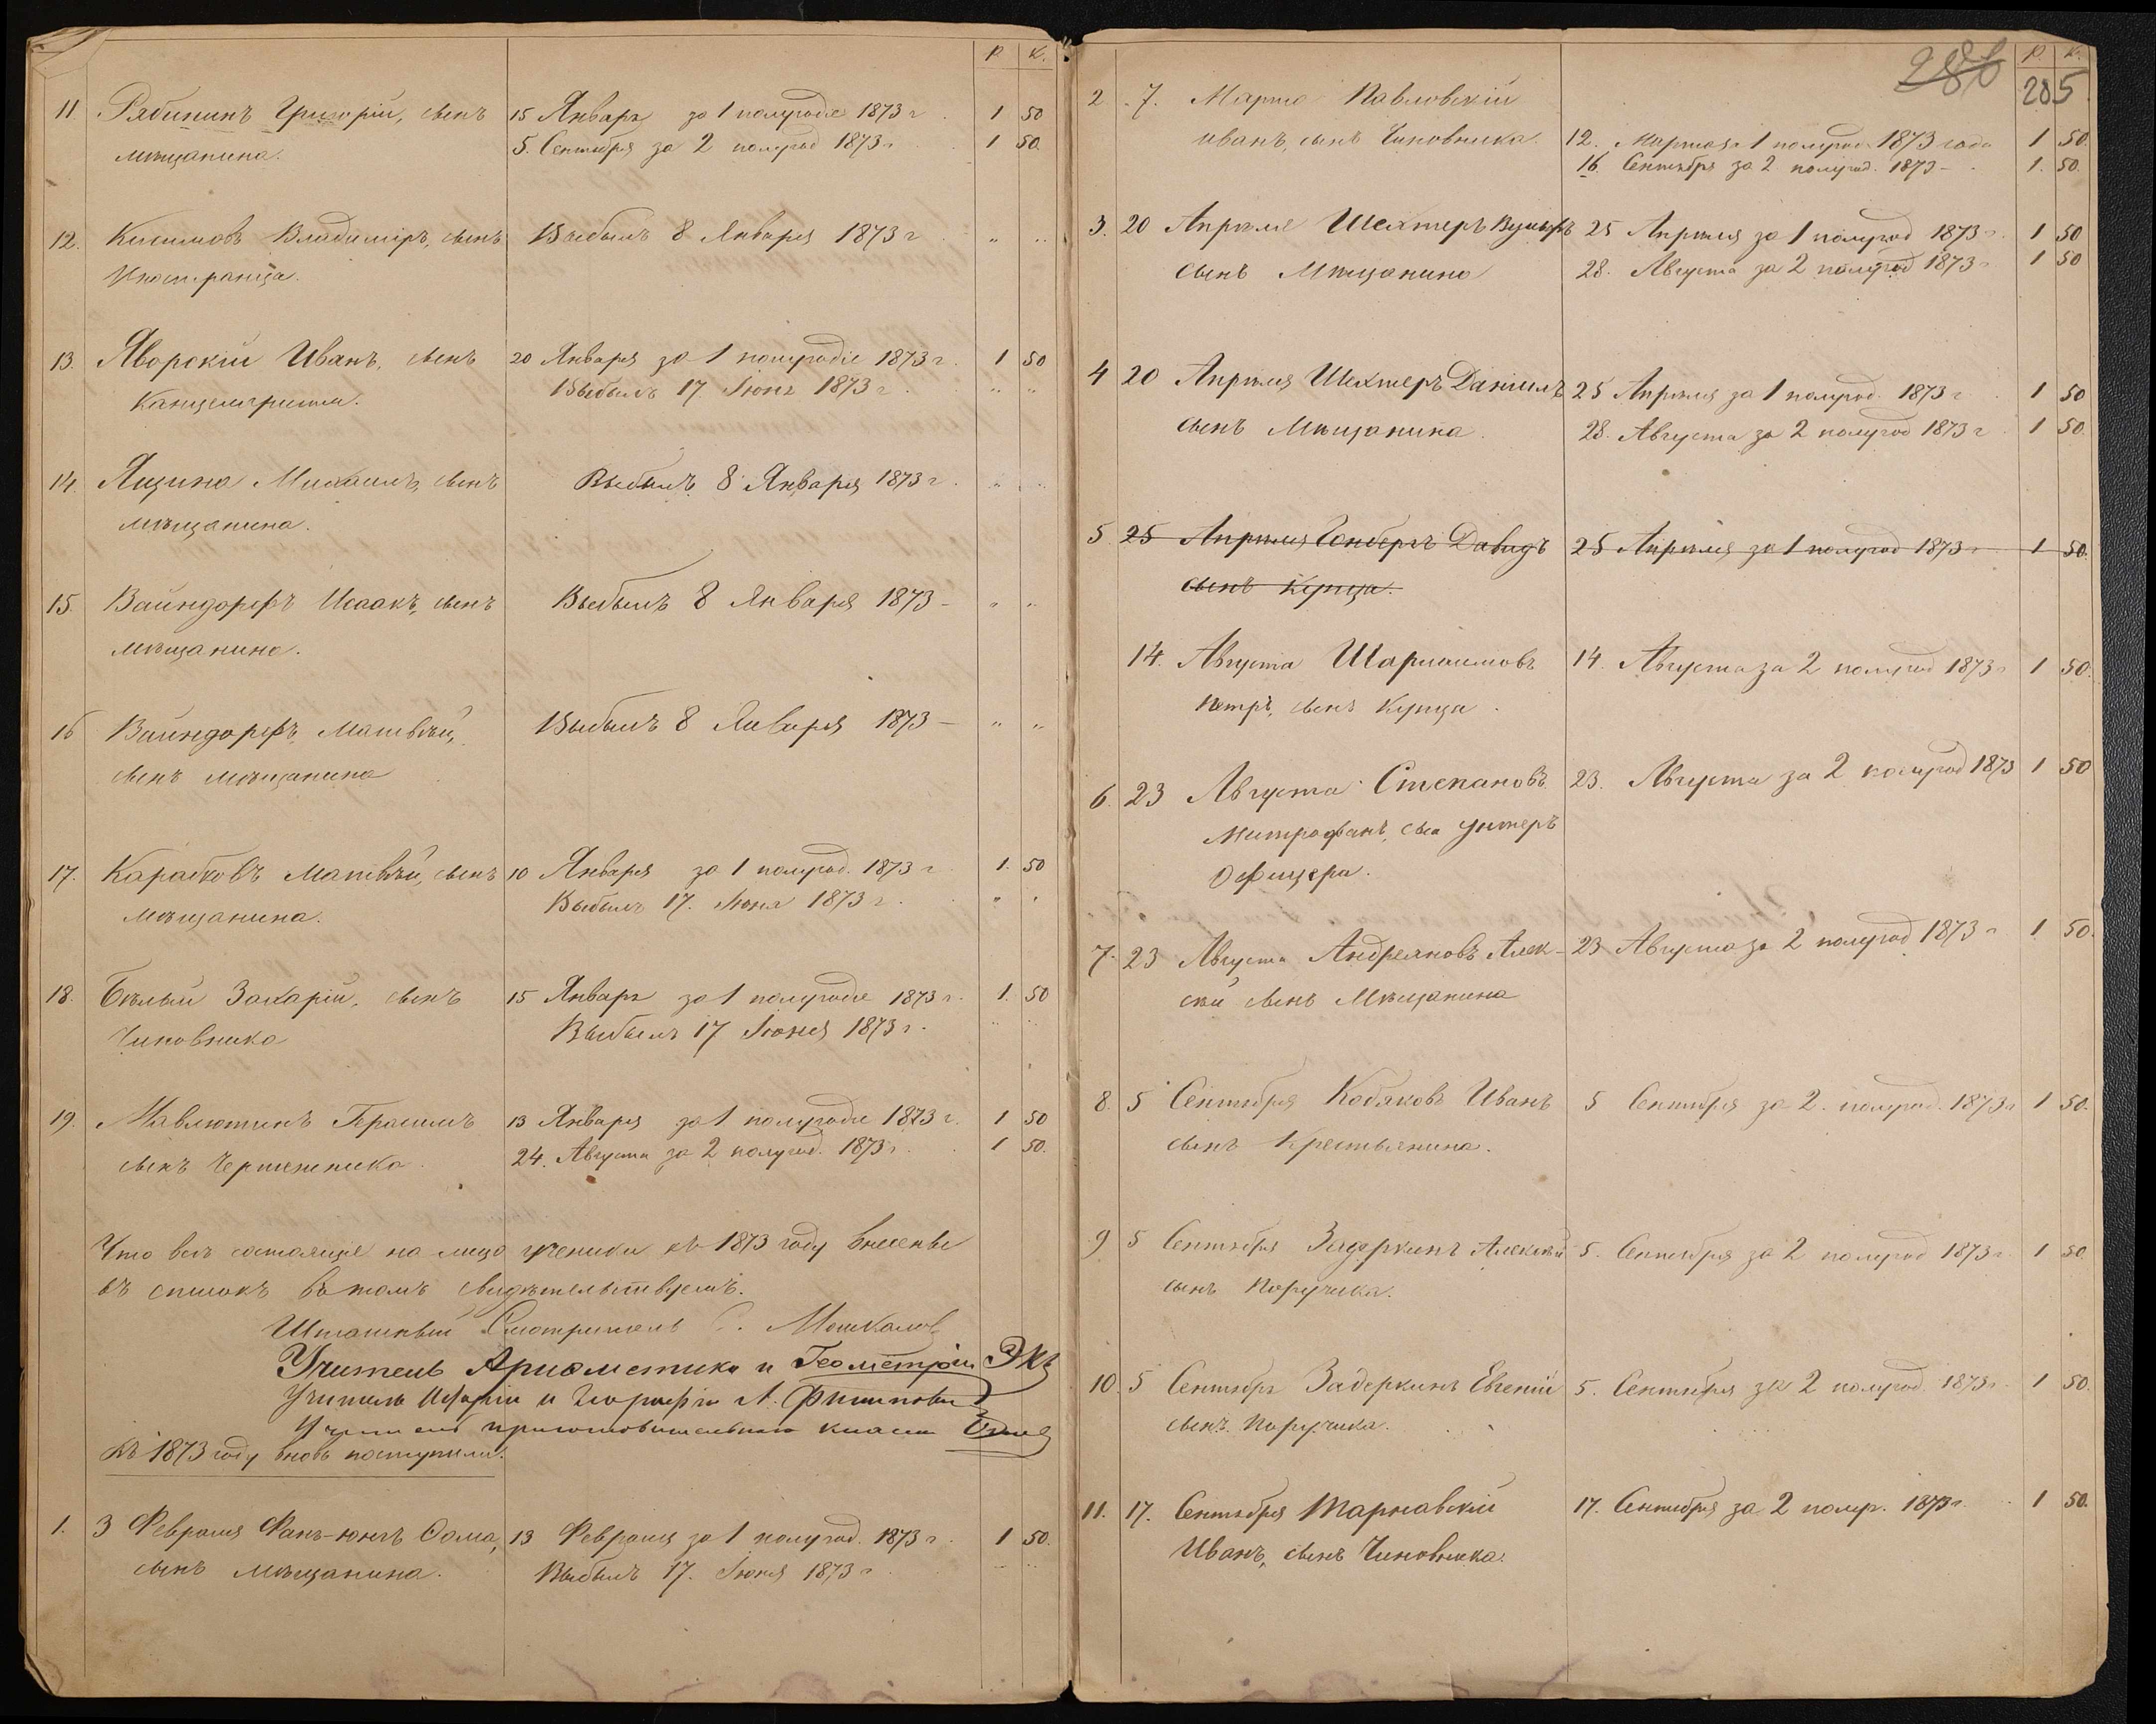 Р. К.
11. Рябининъ Григорій, сынъ 15 Января за 1 полугодіе 1873 г. 1 50
мѣщанина. 5. Сентября за 2 полугод 1873 г. 1 50.
12. Владиміръ, сынъ Выбылъ 8 Января 1873 г. " "
Иностранца.
13. Яворскій Иванъ, сынъ 20 Января за 1 полугодіе 1873 г. 1 50
Канцеляриста. Выбылъ 17. Іюня 1873 г. " "
14. Ящина Михаилъ, сынъ Выбылъ 8 Января 1873 г. " "
мѣщанина.
15. Вайндорфъ Исаакъ, сынъ Выбылъ 8 Января 1873 – " "
мѣщанина.
16 Вайндорфъ, Матвѣй, Выбылъ 8 Января 1873 – " "
сынъ мѣщанина
17. Матвѣй, сынъ 10 Января за 1 полугод. 1873 г. 1. 50
мѣщанина. Выбылъ 17. Іюня 1873 г. " "
18. Бѣлый Захарій, сынъ 15 Января за 1 полугодіе 1873 г. 1. 50
Чиновника Выбылъ 17 Іюня 1873 г. " "
19. Мавлютинъ Герасимъ 13 Января за 1 полугодіе 1873 г. 1 50
сынъ Чертежника. 24. Августа за 2 полугод. 1873 г. 1 50.
Что всѣ состоящіе на лицо ученики къ 1873 году внесены
въ списокъ въ томъ свидѣтельствуемъ.
Штатный Смотритель
Учитель Ариѳметики и Геометріи
Учитель Исторіи и Географіи А.
Учитель приготовительнаго класса
Къ 1873 году вновь поступили.
1. 3 Февраля Ѳома, 13 Февраля за 1 полугод. 1873 г. 1 50.
сынъ мѣщанина. Выбылъ 17. Іюня 1873 г.
286
Р. К.
285
2. 7. Марта Павловскій
Иванъ, сынъ Чиновника. 12. Марта за 1 полугод. 1873 года 1 50.
16. Сентября за 2 полугод. 1873 – 1. 50.
3. 20 Апрѣля Шехтеръ 25 Апрѣля за 1 полугод 1873 г. 1 50
сынъ Мѣщанина 28. Августа за 2 полугод 1873 г. 1 50
4 20 Апрѣля Шехтеръ Даніилъ 25 Апрѣля за 1 полугод. 1873 г. 1 50
сынъ Мѣщанина. 28. Августа за 2 полугод 1873 г. 1 50.
5. 25 Апрѣля Давидъ 25 Апрѣля за 1 полугод 1873 г. 1 50.
сынъ Купца.
14. Августа 14. Августа за 2 полугод 1873 г. 1 50.
Петръ, сынъ Купца.
6. 23 Августа Степановъ 23. Августа за 2 полугод 1873 1 50
Митрофанъ, сын Унтеръ
Офицера.
7. 23 Августа Андреяновъ Алек- 23 Августа за 2 полугод 1873 г. 1 50.
сѣй сынъ Мѣщанина
8. 5 Сентября Кобяковъ Иванъ 5 Сентября за 2. полугод. 1873 г. 1 50.
сынъ Крестьянина.
9 5 Сентября Задеркинъ Алексѣй 5. Сентября за 2 полугод 1873 г. 1 50.
сынъ Поручика.
10. 5 Сентября Задеркинъ Евгеній 5. Сентября за 2 полугод. 1873 г. 1 50.
сынъ Поручика.
11. 17. Сентября Тарнавскій 17. Сентября за 2 полуг. 1873 г. 1 50.
Иванъ, сынъ Чиновника.